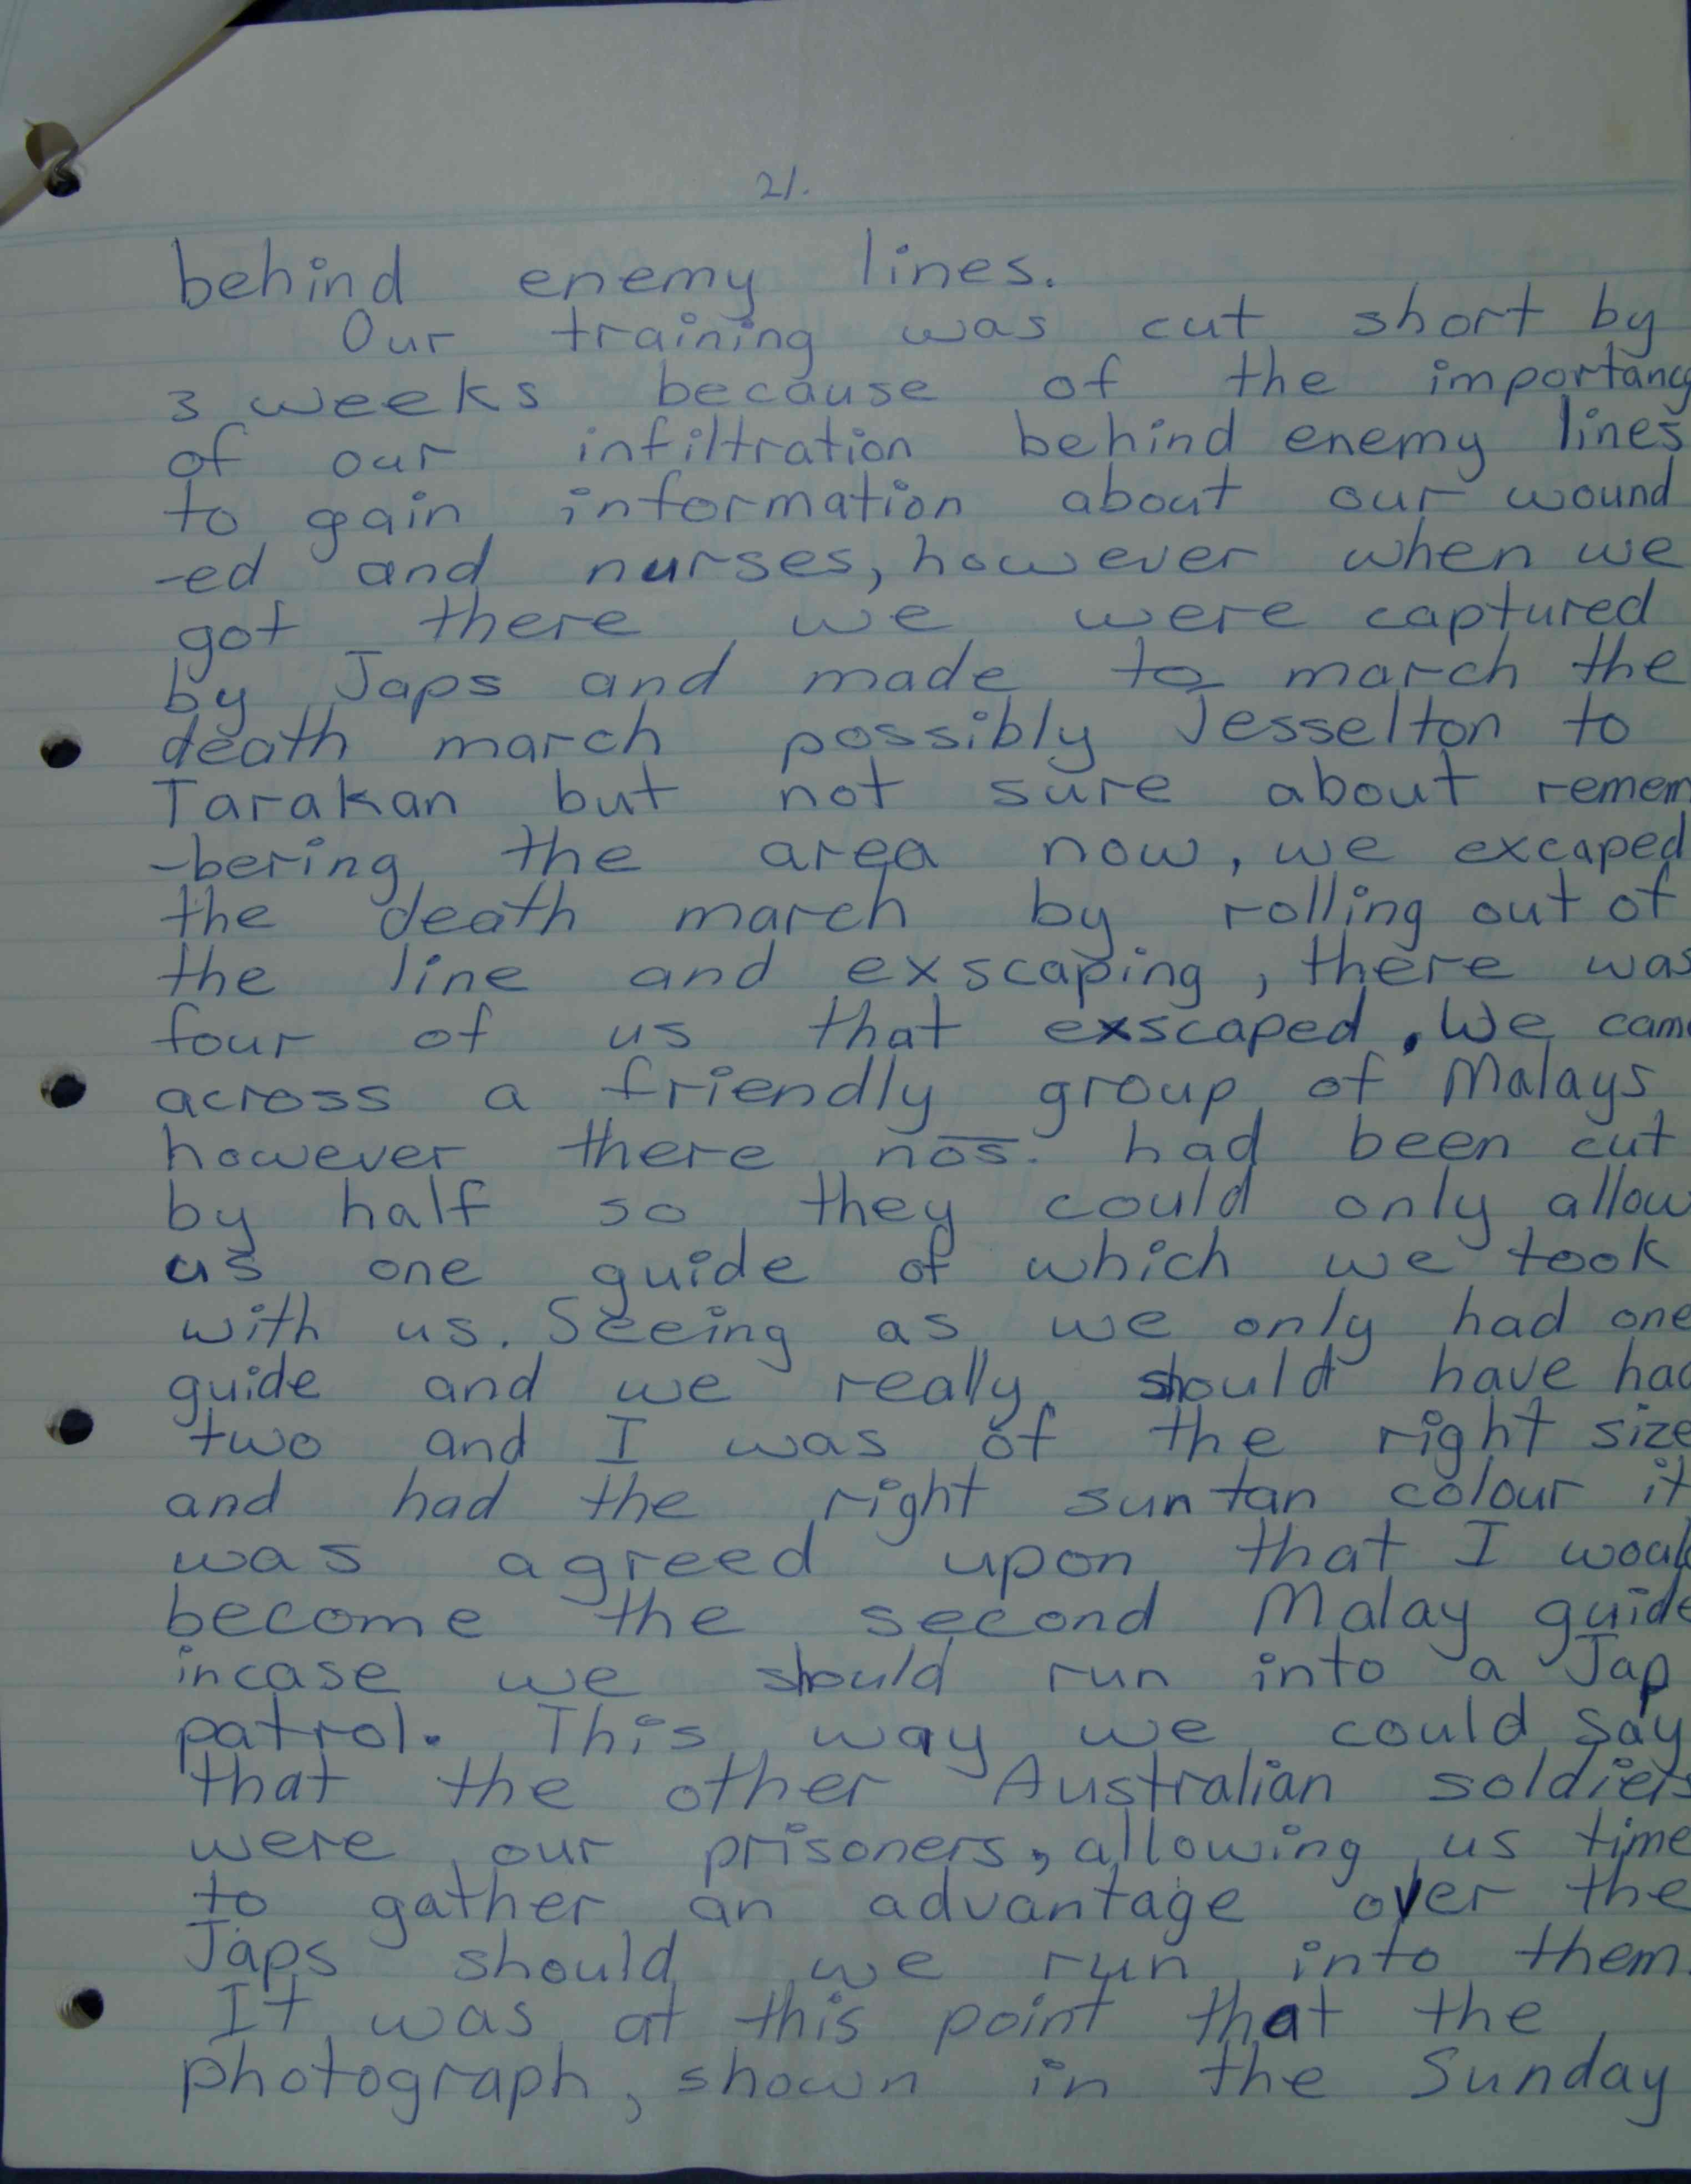 21.
behind enemy lines.
Our training was cut short by
3 weeks because of the importancy
of our infiltration behind enemy lines
to gain information about our wound
-ed and nurses, however when we
got there we were captured
by Japs and made to march the
death march possibly Jesselton to
Tarakan but not sure about remem
-bering the area now, we excaped
the death march by rolling out of
the line and exscaping, there was
four of us that exscaped. We came
across a friendly group of Malays
however there nos. had been cut
by half so they could only allow
us one guide of which we took
with us. Seeing as we only had one
guide and we really should have had
two and I was of the right size
and had the right suntan colour it
was agreed upon that I would
become the second Malay guide
incase we should run into a Jap
patrol. This way we could say
that the other Australian soldiers
were our prisoners, allowing us time
to gather an advantage over the
Japs should we run into them.
It was at this point that the
photograph, shown in the Sunday